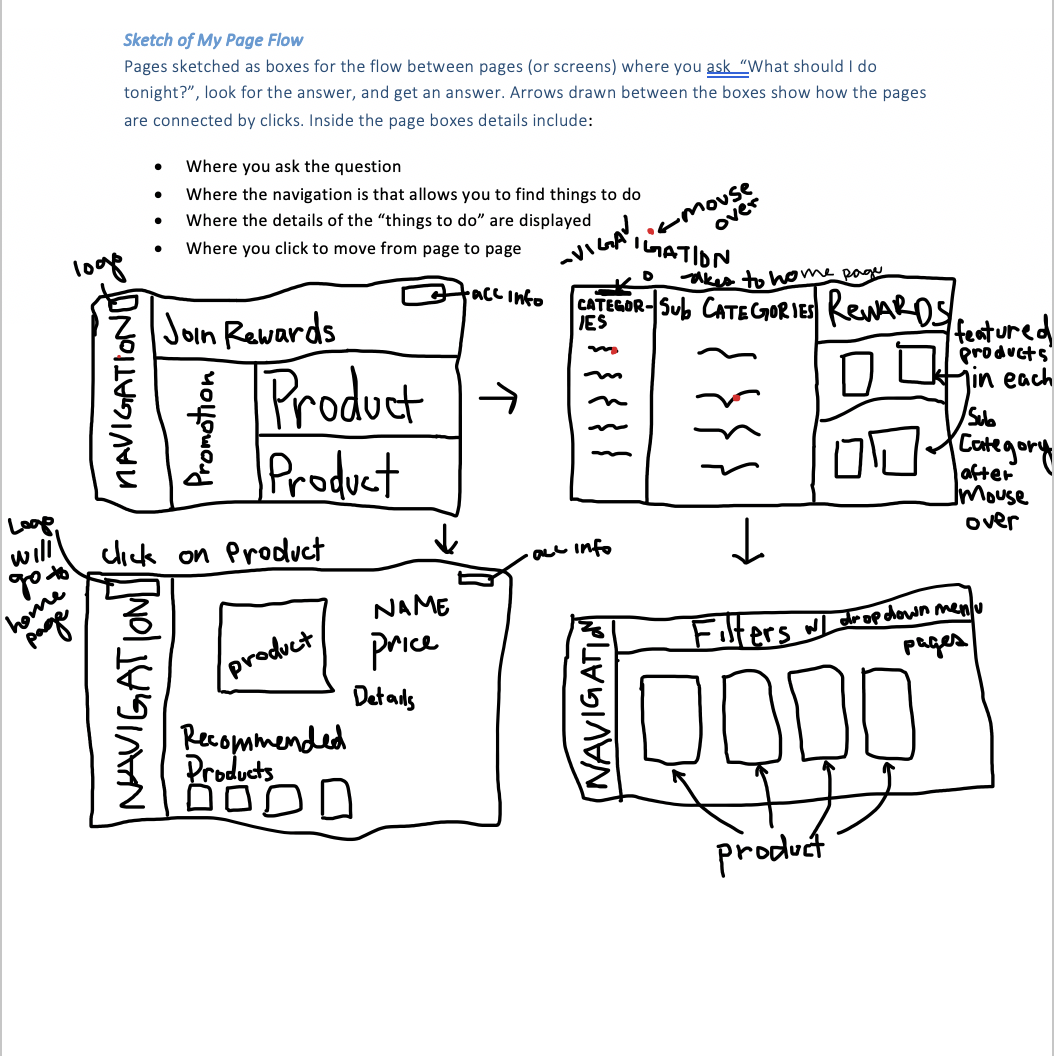 Sketch of My Page Flow
Pages sketched as boxes for the flow between pages (or screens) where you ask “What should I do
tonight?”, look for the answer, and get an answer. Arrows drawn between the boxes show how the pages
are connected by clicks. Inside the page boxes details include:
• Where you ask the question
• Where the navigation is that allows you to find things to do
• Where the details of the “things to do” are displayed
• Where you click to move from page to page
logo
acc info
NAVIGATION
Join Rewards
Promotion
Product
Product
mouse
over
IGATION
to home page
CATEGOR-
IES
Sub CATEGORIES
REWARDS
featured
products
in each
Sub
Category
after
Mouse
over
Logo
will
go to
home
page
click on Product
acc info
NAVIGATION
product
NAME
Price
Details
Recommended
Products
NAVIGATI
Filters w/ dropdown menu
pages
product